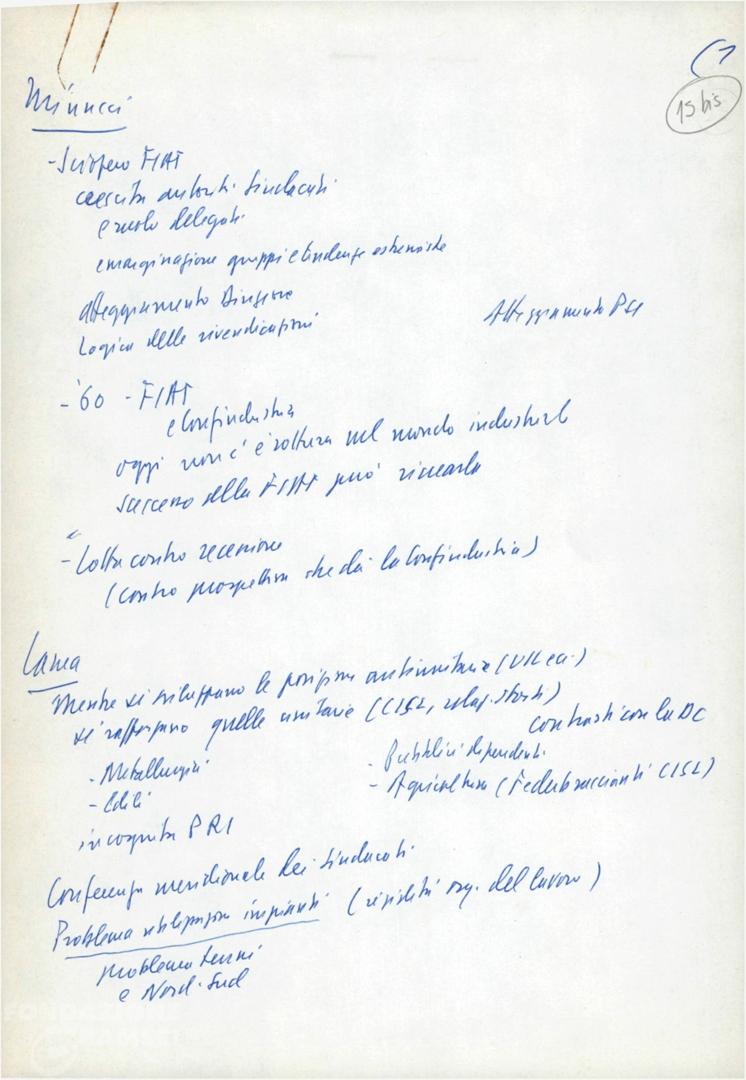 15 bis
Minucci
- Sciopero FIAT
crescita autorità sindacati
e ruolo delegati
emarginazione gruppi e tendenze estremiste
atteggiamento
Atteggiamento PSI
Logica delle rivendicazioni
- '60 - FIAT
e Confindustria
oggi non c'è rottura nel mondo industriale
successo alla FIAT può
- Lotta contro recessione
(contro prospettiva che dà la Confindustria)
Lama
Mentre si sviluppano le posizioni antiunitarie (UIL ecc.)
si rafforzano quelle unitarie (CISL, relaz. Storti)
contrasti con la DC
- Metallurgici
- Pubblici dipendenti
- Edili
- Agricoltura (Federbraccianti CISL)
incognita PRI
Conferenza meridionale dei sindacati
Problema utilizzazione impianti (rigidità org. del lavoro)
problema turni
e Nord-Sud
FONDAZIONE
GRAMSCI